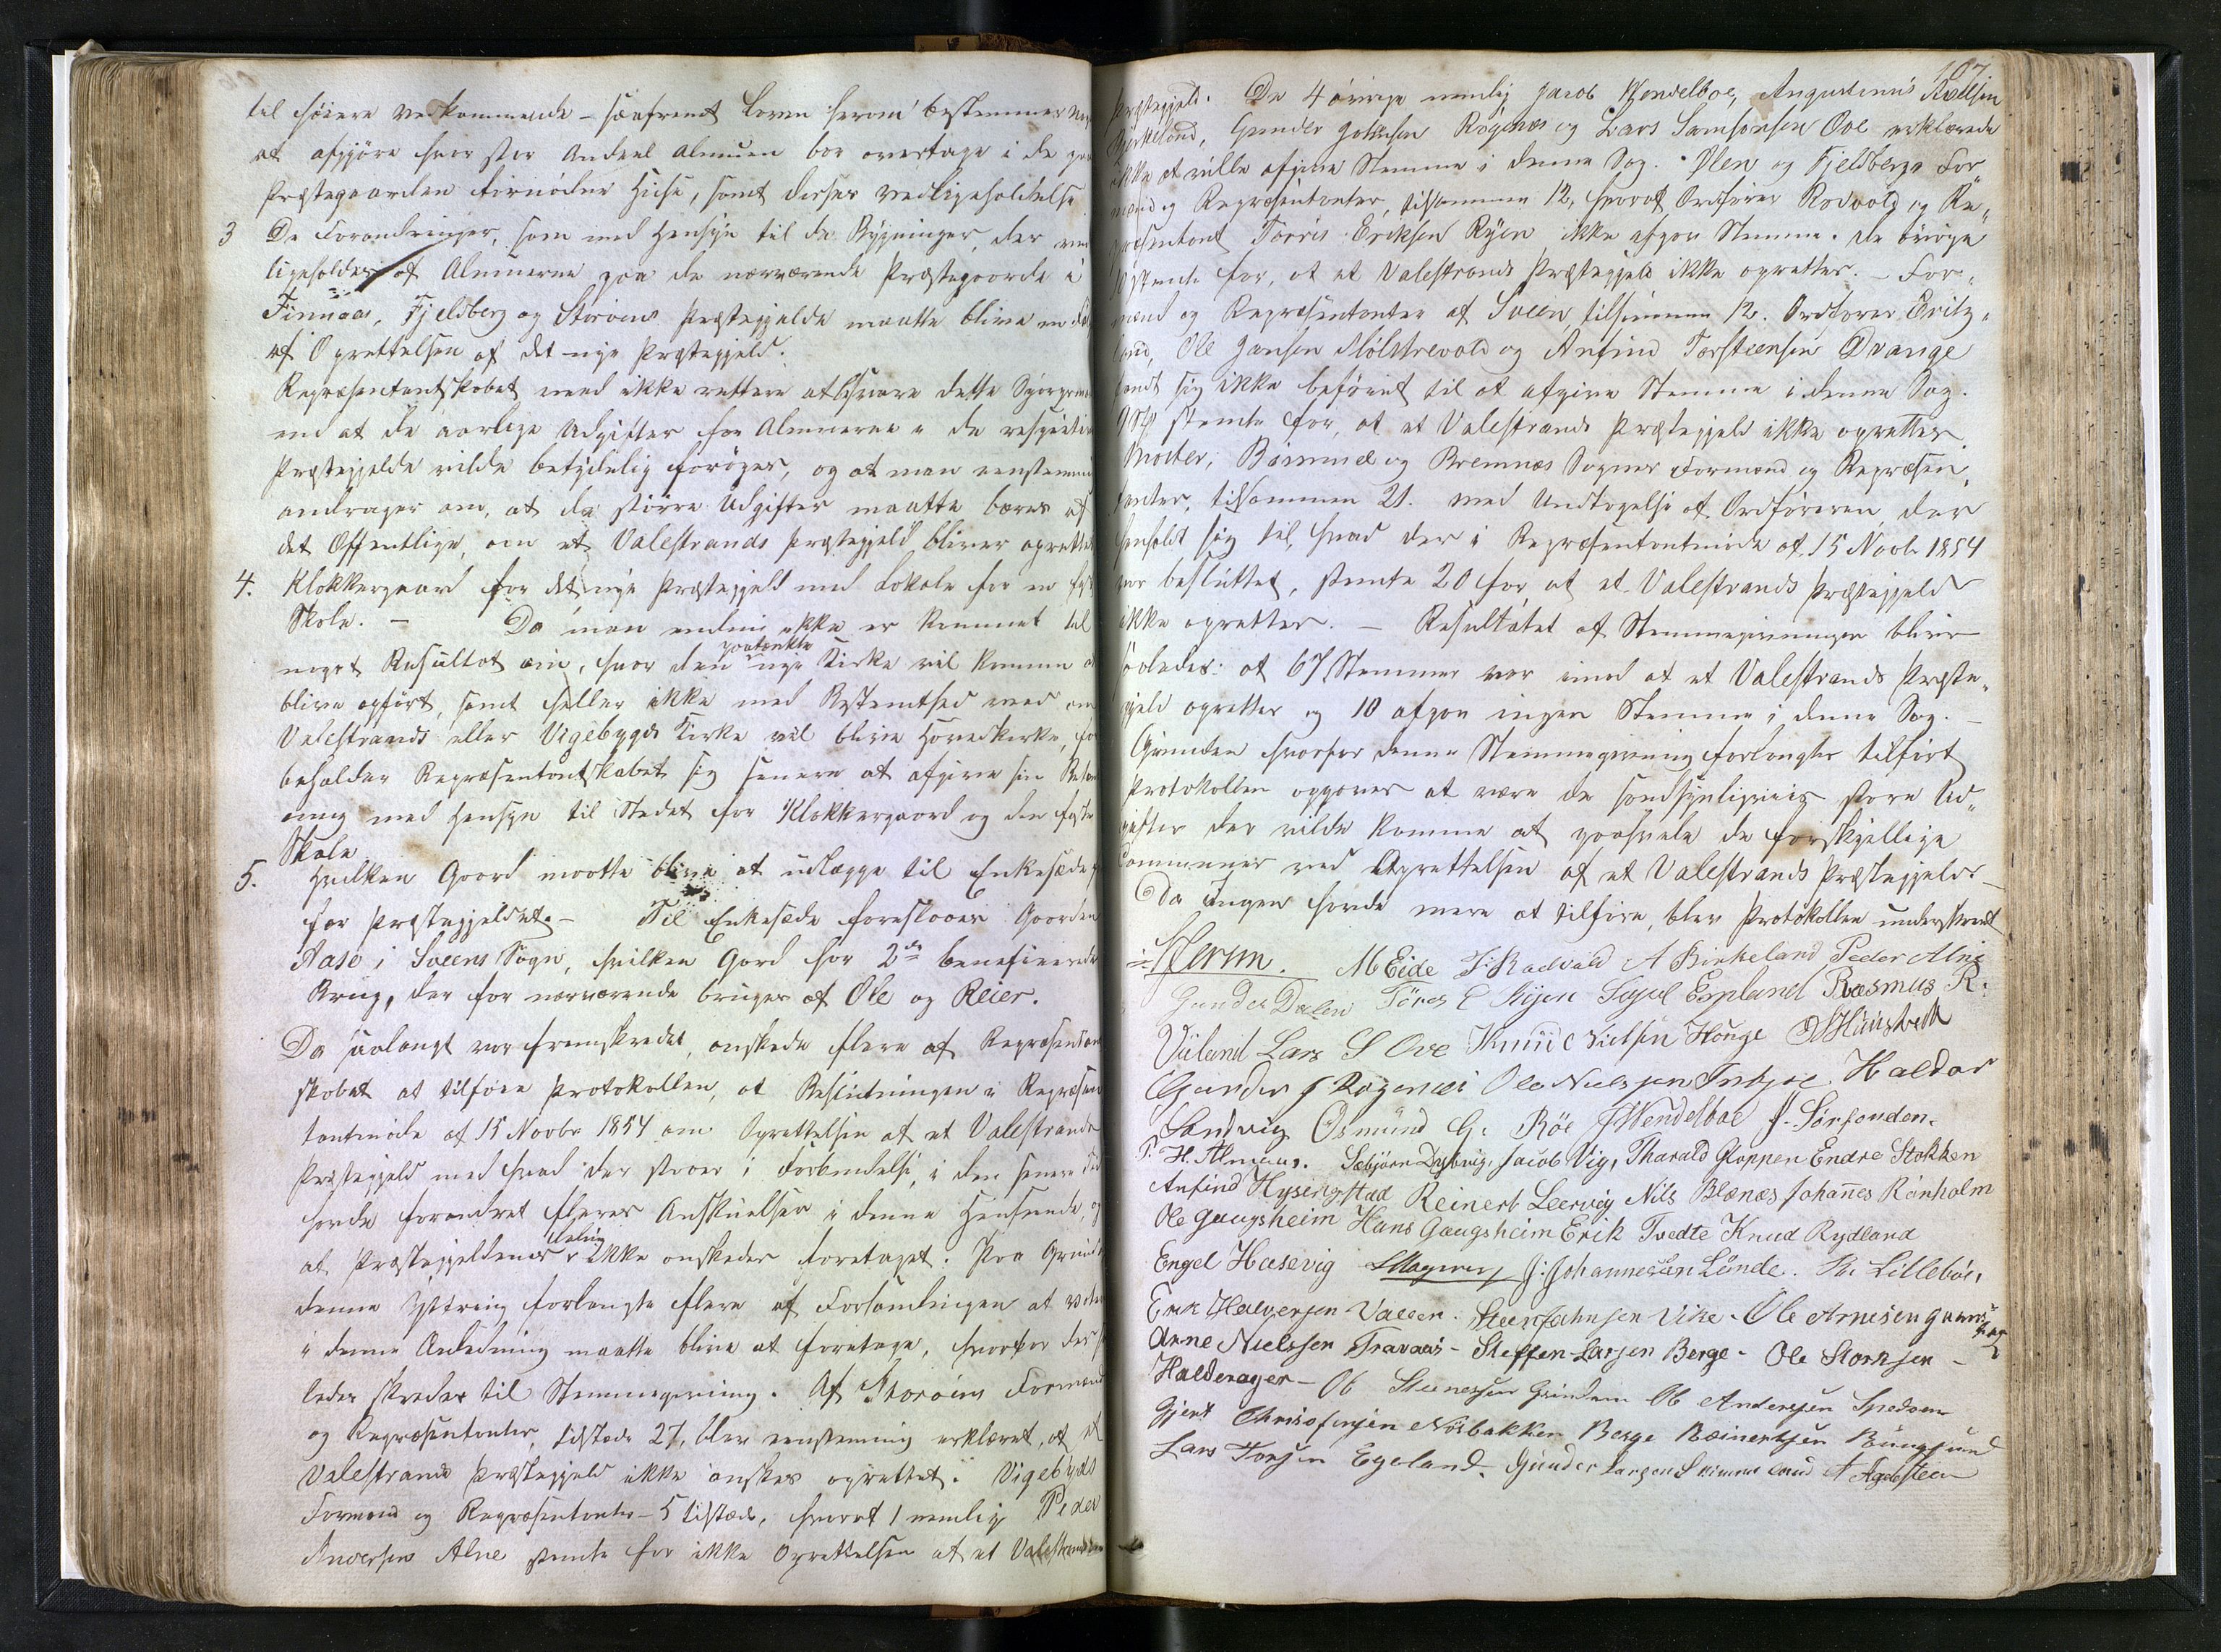 til høiere Vedkommende - saafremt Loven herom bestemmer
at afgjöre hvor stor Andeel Almuen bør overtage i de paa
Præstegaarden fornødne Huse, samt disses Vedligeholdelse
3 De Forandringer, som med Hensyn til de Bygninger, der
ligeholdes af Almuerne paa de nærværende Præstegaarde i
Finnaas, Fjeldberg og Störöens Præstegjelde maatte blive en
af Oprettelsen af det nye Præstegjeld.
Repræsentantskabet veed ikke rettere at besvare dette
end at de aarlige Udgifter for Almuerne i de
Præstegjelde vilde betydelig forøges, og at man eenstemmig
andrager om, at de större Udgifter maatte bæres af
det Offentlige, om et Valestrands Præstegjeld bliver oprettet
4. Klokkergaard for det nye Præstegjeld med Lokale for en fast
Skole. - Da man endnu ikke er kommet til
paatænkte
noget Resultat om, hvor den nye Kirke vil komme at
blive opfört, samt heller ikke med Bestemthed veed om
Valestrands eller Vigebygds Kirke vil blive Hovedkirke, for
beholder Repræsentantskabet sig senere at afgive sin
ning med Hensyn til Stedet for Klokkergaard og den faste
Skole
5. Hvilken Gaard maatte blive at udlægge til Enkesæde
for Præstegjeldet. - Til Enkesæde foreslaaes Gaarden
Aase i Sveens Sogn, hvilken Gard har 2de beneficerede
Brug, der for nærværende bruges af Ole og Reier.
Da saalangt var fremskredet, onskede flere af Repræsentant
skabet at tilføie Protokollen, at Beslutningen i Repræsen
tantmöde af 15 Novbr 1854 om Oprettelsen af et Valestrands
Præstegjeld med hvad der staaer i Forbindelse, i den senere Tid
havde forandret fleres Anskuelser i denne Henseende, og
deling
at Præstegjeldenes ikke onskedes foretaget. Paa Grund
denne Yttring forlangte flere af Forsamlingen at
i denne Anledning maatte blive at foretage, hvorfor der
ledes skredes til Stemmegivning. Af Storöens Formænd
og Repræsentanter, tilstede 27, blev eenstemmig erklæret, at et
Valestrands Præstegjeld ikke onskes oprettet. Vigebygds
Formænd og Repræsentanter - 5 tilstæde, hvoraf 1 nemlig Peder
Andersen Alne stemte for ikke Oprettelsen af et Valestrands
107
Præstegjeld. De 4 övrige nemlig Jacob Wendelboe, Augustinus
Birkeland, Gunder Rögenæs og Lars Samsonsen Ove erklærede
ikke at ville afgive Stemme i denne Sag. Ølen og Fjeldbergs For„
mænd og Repræsentanter, tilsammen 12, hvoraf Ordfører Rodvold og Re„
præsentant Törris Eriksen Ryen ikke afgav Stemme. De övrige
10 stemte for, at et Valestrands Præstegjeld ikke oprettes. - For„
mænd og Repræsentanter af Sveen tilsammen 12. Ordförer
Ole Jansen Mölstrevold og Anfind Torsteensen Drange
fandt sig ikke beföiet til at afgive Stemme i denne Sag.
stemte for, at et Valestrands Præstegjeld ikke oprettes.
Moster, Bömmel og Bremnæs Sognes Formænd og Repræsen„
tanter, tilsammen 21. med Undtagelse af Ordföreren, der
henholdt sig til, hvad der i Repræsentantmöde af 15 Novbr 1854
var besluttet, stemte 20 for at et Valestrands Præstegjeld
ikke oprettes. - Resultatet af Stemmegivningen blev
saaledes: at 67 Stemmer var imod at et Valestrands Præste„
gjeld oprettes og 10 afgav ingen Stemme i denne Sag. -
Grunden hvorfor denne Stemmegivning forlangtes tilfört
Protokollen opgaves at være de sandsynligviis store Ud„
gifter der vilde komme at paahvile de forskjellige
Communer ved Oprettelsen af et Valestrands Præstegjeld. -
Da Ingen havde mere at tilføie, blev Protokollen underskrevet
M Eide A Birkeland Peder Alne
Gunder Dalen Töres E Ryen Espland Rasmus R.
Viiland Lars S Ove Knud Nielsen Houge
Gunder J Rogenæs Ole Nielssen Haldor
Sandvig Osmund G. Röe J Wendelboe J. Sörhouden.
H. Almaas. Sæbjörn Dybvig, Jacob Vig, Tharald Gloppen Endre Stokken
Anfind Hysingstad Reinert Leervig Nils Blænæs Johannes Rönholm
Ole Gaugsheim Hans Gaugsheim Erik Tvedte Knud Rydland
Engel Hæsevig J. Johannessen Lunde. Lilleböe,
Erik Halversen Valler. Steen Johnsen Vike. Ole Arnesen
Arne Nielssen Travaas - Steffen Larsen Berge - Ole Storksen -
Halderager - Ob Steenessen Grindem Ob Andersen
Gjert Christofersen Nörbakken Berge Reinertsen
Lars Torsen Egeland. Gunder Larsen A Ageesteen